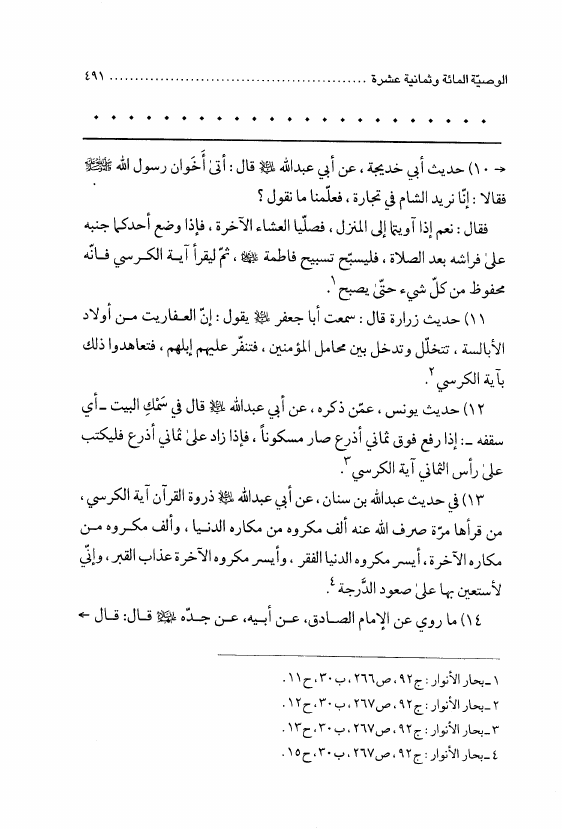 الوصيّة المائة وثمانية عشرة .................................................. ٤٩١
→ ١٠) حديث أبي خديجة، عن أبي عبدالله ﵇ قال: أتىٰ أَخَوان رسول الله ﷺ
فقالا: إنّا نريد الشام في تجارة، فعلّمنا ما نقول؟
فقال: نعم إذا آويتما إلى المنزل، فصلّيا العشاء الآخرة، فإذا وضع أحدكما جنبه
علىٰ فراشه بعد الصلاة، فليسبّح تسبيح فاطمة ﵍، ثمّ ليقرأ آية الكرسي فانّه
محفوظ من كلّ شيء حتّىٰ يصبح١.
١١) حديث زرارة قال: سمعت أبا جعفر ﵇ يقول: إنّ العفاريت من أولاد
الأبالسة، تتخلّل وتدخل بين محامل المؤمنين، فتنفّر عليهم إبلهم، فتعاهدوا ذلك
بآية الكرسي٢.
١٢) حديث يونس، عمّن ذكره، عن أبي عبدالله ﵇ قال في سَمْكِ البيت ـ أي
سقفه ـ: إذا رفع فوق ثماني أذرع صار مسكوناً، فإذا زاد علىٰ ثماني أذرع فليكتب
علىٰ رأس الثماني آية الكرسي٣.
١٣) في حديث عبدالله بن سنان، عن أبي عبدالله ﵇ ذروة القرآن آية الكرسي،
من قرأها مرّة صرف الله عنه ألف مكروه من مكاره الدنيا، وألف مكروه من
مكاره الآخرة، أيسر مكروه الدنيا الفقر، وأيسر مكروه الآخرة عذاب القبر، وإنّي
لأستعين بها علىٰ صعود الدَّرجة٤.
١٤) ما روي عن الإمام الصادق، عن أبيه، عن جدّه ﵇ قال: قال ←
١ـ بحار الأنوار: ج٩٢، ص٢٦٦، ب٣٠، ح١١.
٢ـ بحار الأنوار: ج٩٢، ص٢٦٧، ب٣٠، ح١٢.
٣ـ بحار الأنوار: ج٩٢، ص٢٦٧، ب٣٠، ح١٣.
٤ـ بحار الأنوار: ج٩٢، ص٢٦٧، ب٣٠، ح١٥.